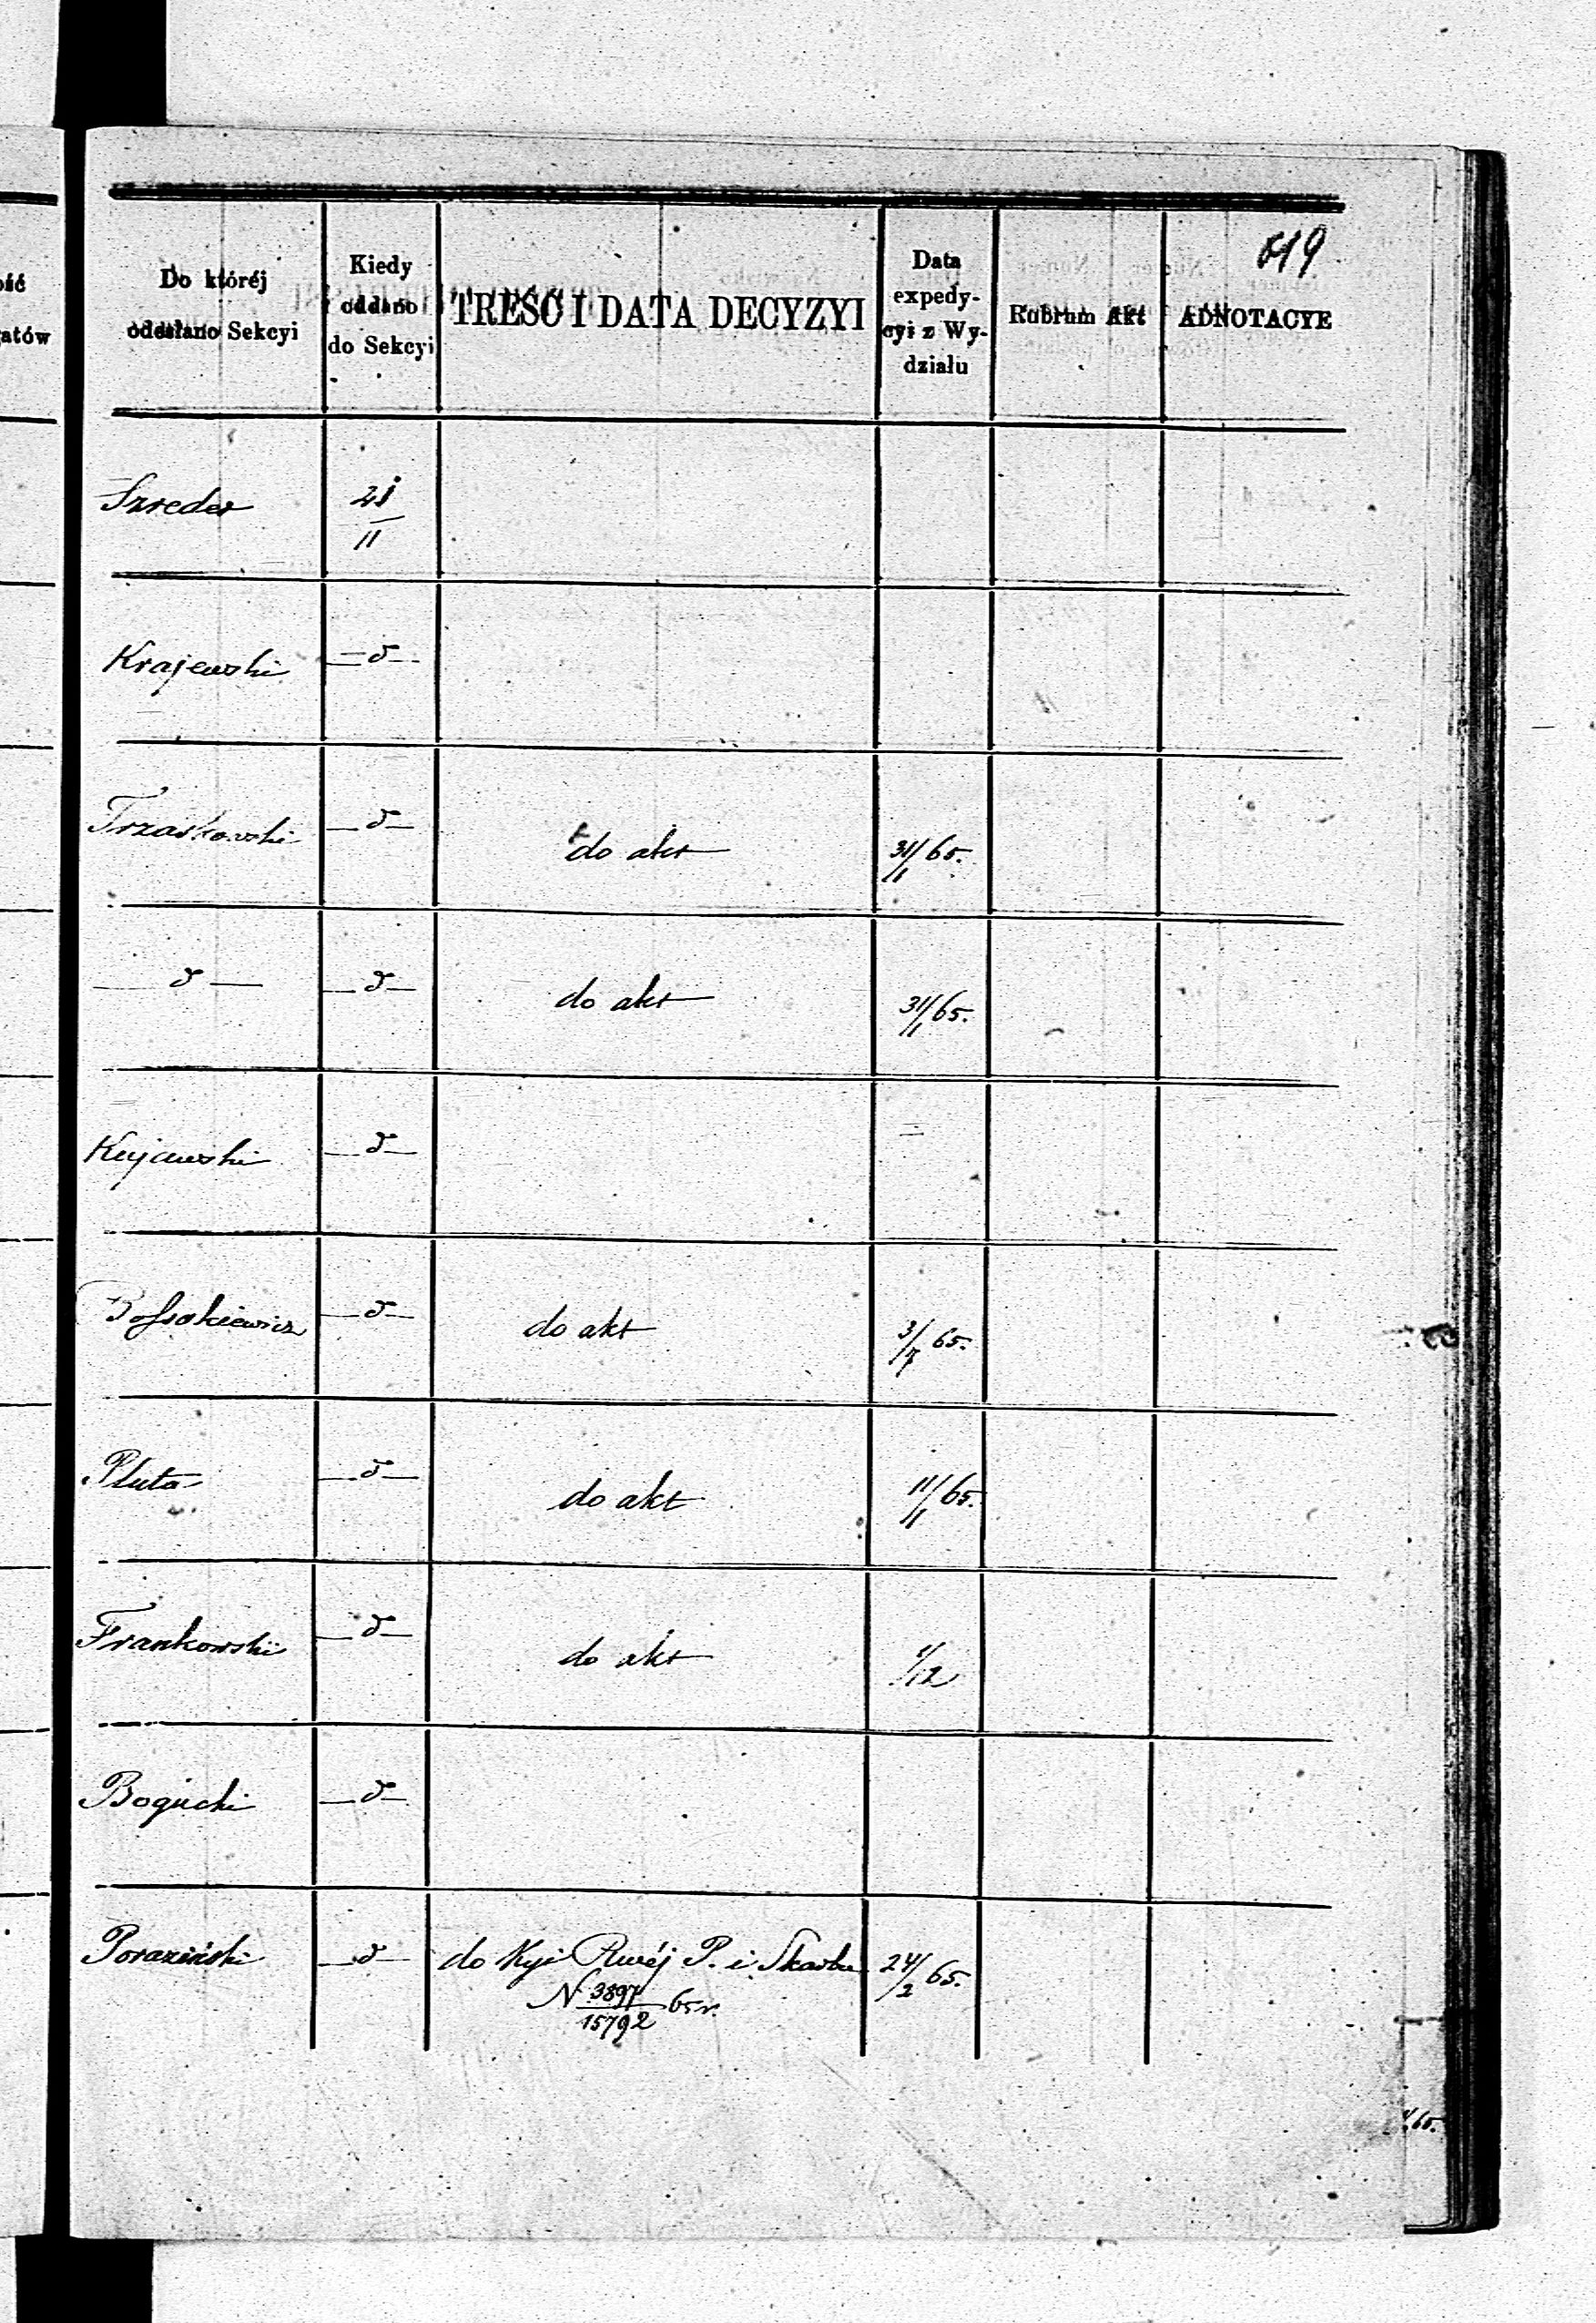 619
Do któréj odesłano Sekcyi
Kiedy oddano do Sekcyi
TREŚĆ I DATA DECYZYI
Data expedycyi z Wydziału
Rubrum Akt
ADNOTACYE
ość
atów
Szreder 21/11
Krajewski —d—
Trzaskowski —d— do akt 31/1 65.
—d— —d— do akt 31/1 65.
Kujawski —d—
—d— do akt 3/7 65.
Pluta —d— do akt 11/1 65.
Frankowski —d— do akt 1/12
Bogucki —d—
Poraziński —d— do Kyi Rwéj P. i Skarbu 24/2 65.
N 3897/15792 65 r.